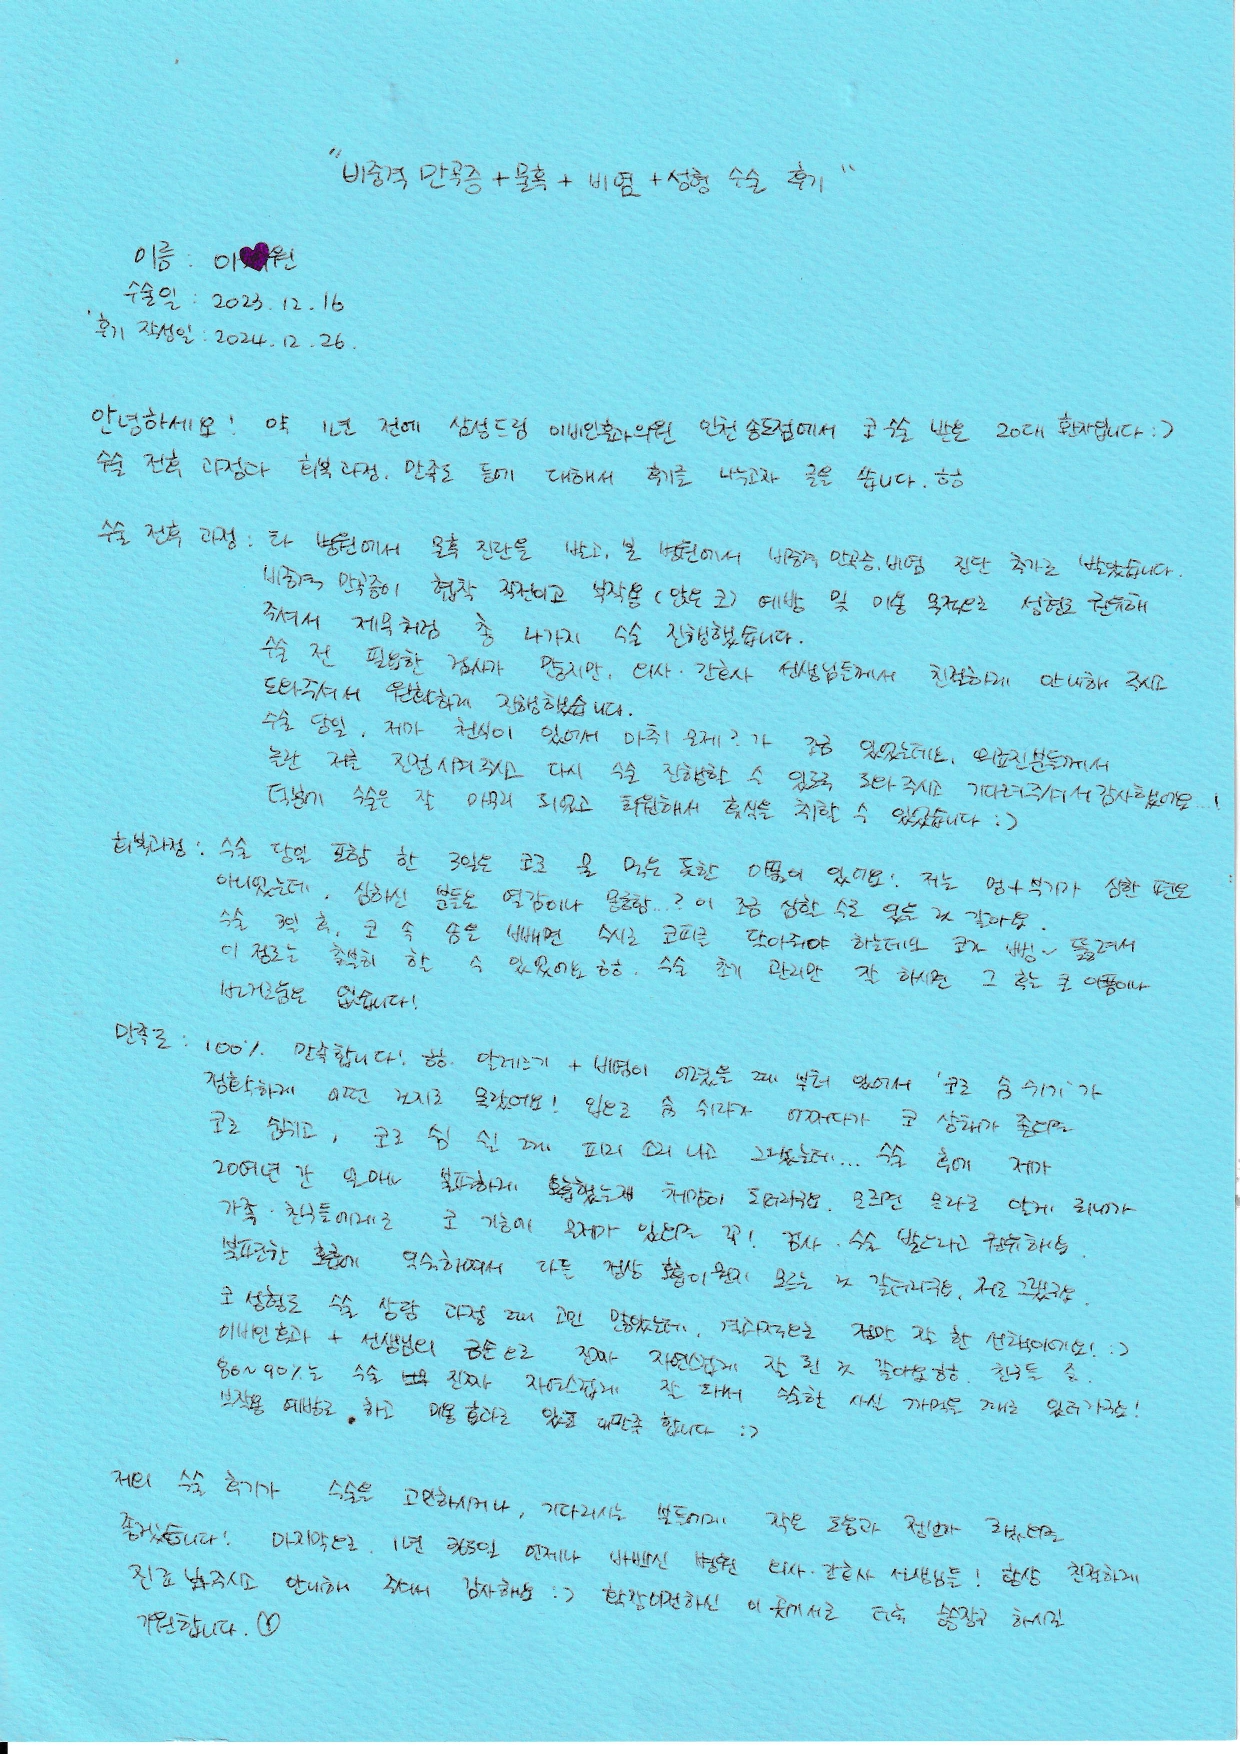 "비중격 만곡증 + 물혹 + 비염 + 성형 수술 후기"
이름 : 이 원
수술일 : 2023.12.16
후기 작성일 : 2024.12.26.
안녕하세요! 약 1년 전에 삼성드림 이비인후과의원 인천 송도점에서 코 수술 받은 20대 환자입니다 :)
수술 전후 과정과 회복과정, 만족도 등에 대해서 후기를 나누고자 글을 씁니다. ㅎㅎ
수술 전후 과정 : 타 병원에서 물혹 진단을 받고, 본 병원에서 비중격 만곡증, 비염 진단 추가로 받았습니다.
비중격 만곡증이 협착 직전이고 부작용 (안장 코) 예방 및 미용 목적으로 성형도 권유해
주셔서 제목처럼 총 4가지 수술 진행했습니다.
수술 전 필요한 검사가 많지만, 의사·간호사 선생님들께서 친절하게 안내해 주시고
도와주셔서 원활하게 진행했습니다.
수술 당일, 제가 천식이 있어서 마취 문제?가 조금 있었는데요, 의료진분들께서
놀란 저를 진정시켜주시고 다시 수술 진행할 수 있도록 도와주시고 기다려주셔서 감사했어요...!
덕분에 수술은 잘 마무리 되었고 회원해서 휴식을 취할 수 있었습니다 :)
회복과정 : 수술 당일 포함 한 3일은 코로 물 먹은 듯한 아픔이 있어요! 저는 멍+부기가 심한 편은
아니었는데, 심하신 분들은 열감이나 몽롱함...? 이 조금 심할 수도 있을 것 같아요.
수술 3일 후, 코 속 솜을 빼면 수시로 코피를 닦아줘야 하는데요 코가 뻥~ 뚫려서
이 정도는 충분히 할 수 있었어요 ㅎㅎ. 수술 초기 관리만 잘 하시면 그 후는 큰 아픔이나
번거로움은 없습니다!
만족도 : 100% 만족합니다! ㅎㅎ. 알레르기 + 비염이 어렸을 때 부터 있어서 '코로 숨 쉬기'가
정확하게 어떤 건지도 몰랐어요! 입으로 숨 쉬다가 어쩌다가 코 상태가 좋다면
코로 숨쉬고, 코로 숨 쉴 때 피리 소리 나고 그랬는데... 수술 후에 제가
20여년 간 얼마나 불편하게 호흡했는지 체감이 되더라구요. 모르면 몰라도 알게 되니까
가족·친구들에게도 코 기능에 문제가 있다면 꼭! 검사·수술 받으라고 권유해요.
불편한 호흡에 익숙해져서 다들 정상 호흡이 뭔지 모르는 것 같더라구요, 저도 그랬구요.
코 성형도 수술 상담 과정 때 고민 많았는데, 결과적으로 정말 잘 한 선택이에요! :)
이비인후과 + 선생님의 금손으로 진짜 자연스럽게 잘 된 것 같아요 ㅎㅎ. 친구들 중
80~90%는 수술 진짜 자연스럽게 잘 돼서 수술한 사실 까먹을 때도 있더라구요!
부작용 예방도 하고 미용 효과도 있고 대만족 합니다 :)
저의 수술 후기가 수술을 고민하시거나, 기다리시는 분들에게 작은 도움과 정보가 되었으면
좋겠습니다! 마지막으로, 1년 365일 언제나 바쁘신 병원 의사·간호사 선생님들! 항상 친절하게
진료 봐주시고 안내해 주셔서 감사해요 :) 확장이전하신 이 곳에서도 더욱 승승장구 하시길
기원합니다.